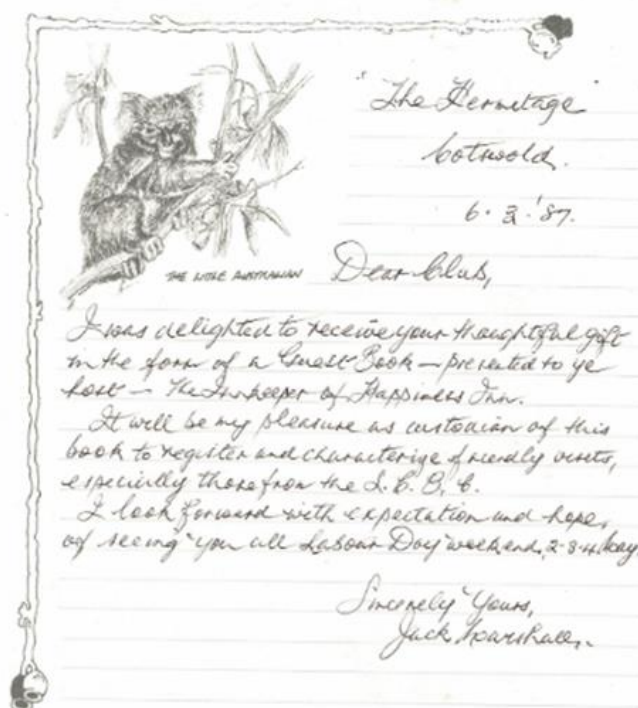 "The Hermitage"
Cotswold.
6. 3. '87.
THE WISE AUSTRALIAN
Dear Club,
I was delighted to receive your thoughtful gift
in the form of a Guest Book — presented to ye
host — The Innkeeper of Happiness Inn.
It will be my pleasure as custodian of this
book to register and characterize friendly visits,
especially those from the
I look forward with expectation and hope,
of seeing you all Labour Day weekend, 2-3-4 May
Sincerely Yours,
Jack Marshall.